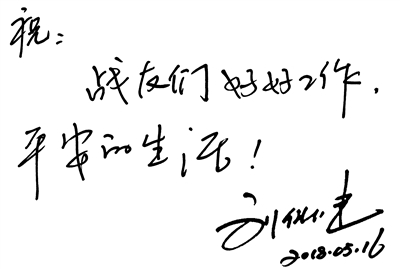 祝：
战友们好好工作，
平安的生活！
刘
2018.05.16